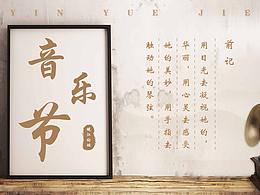 YIN YUE JIE
音乐节
前记
用目光去凝视她的
华丽·用心灵去感受
她的美妙·用手指去
触动她的琴弦。